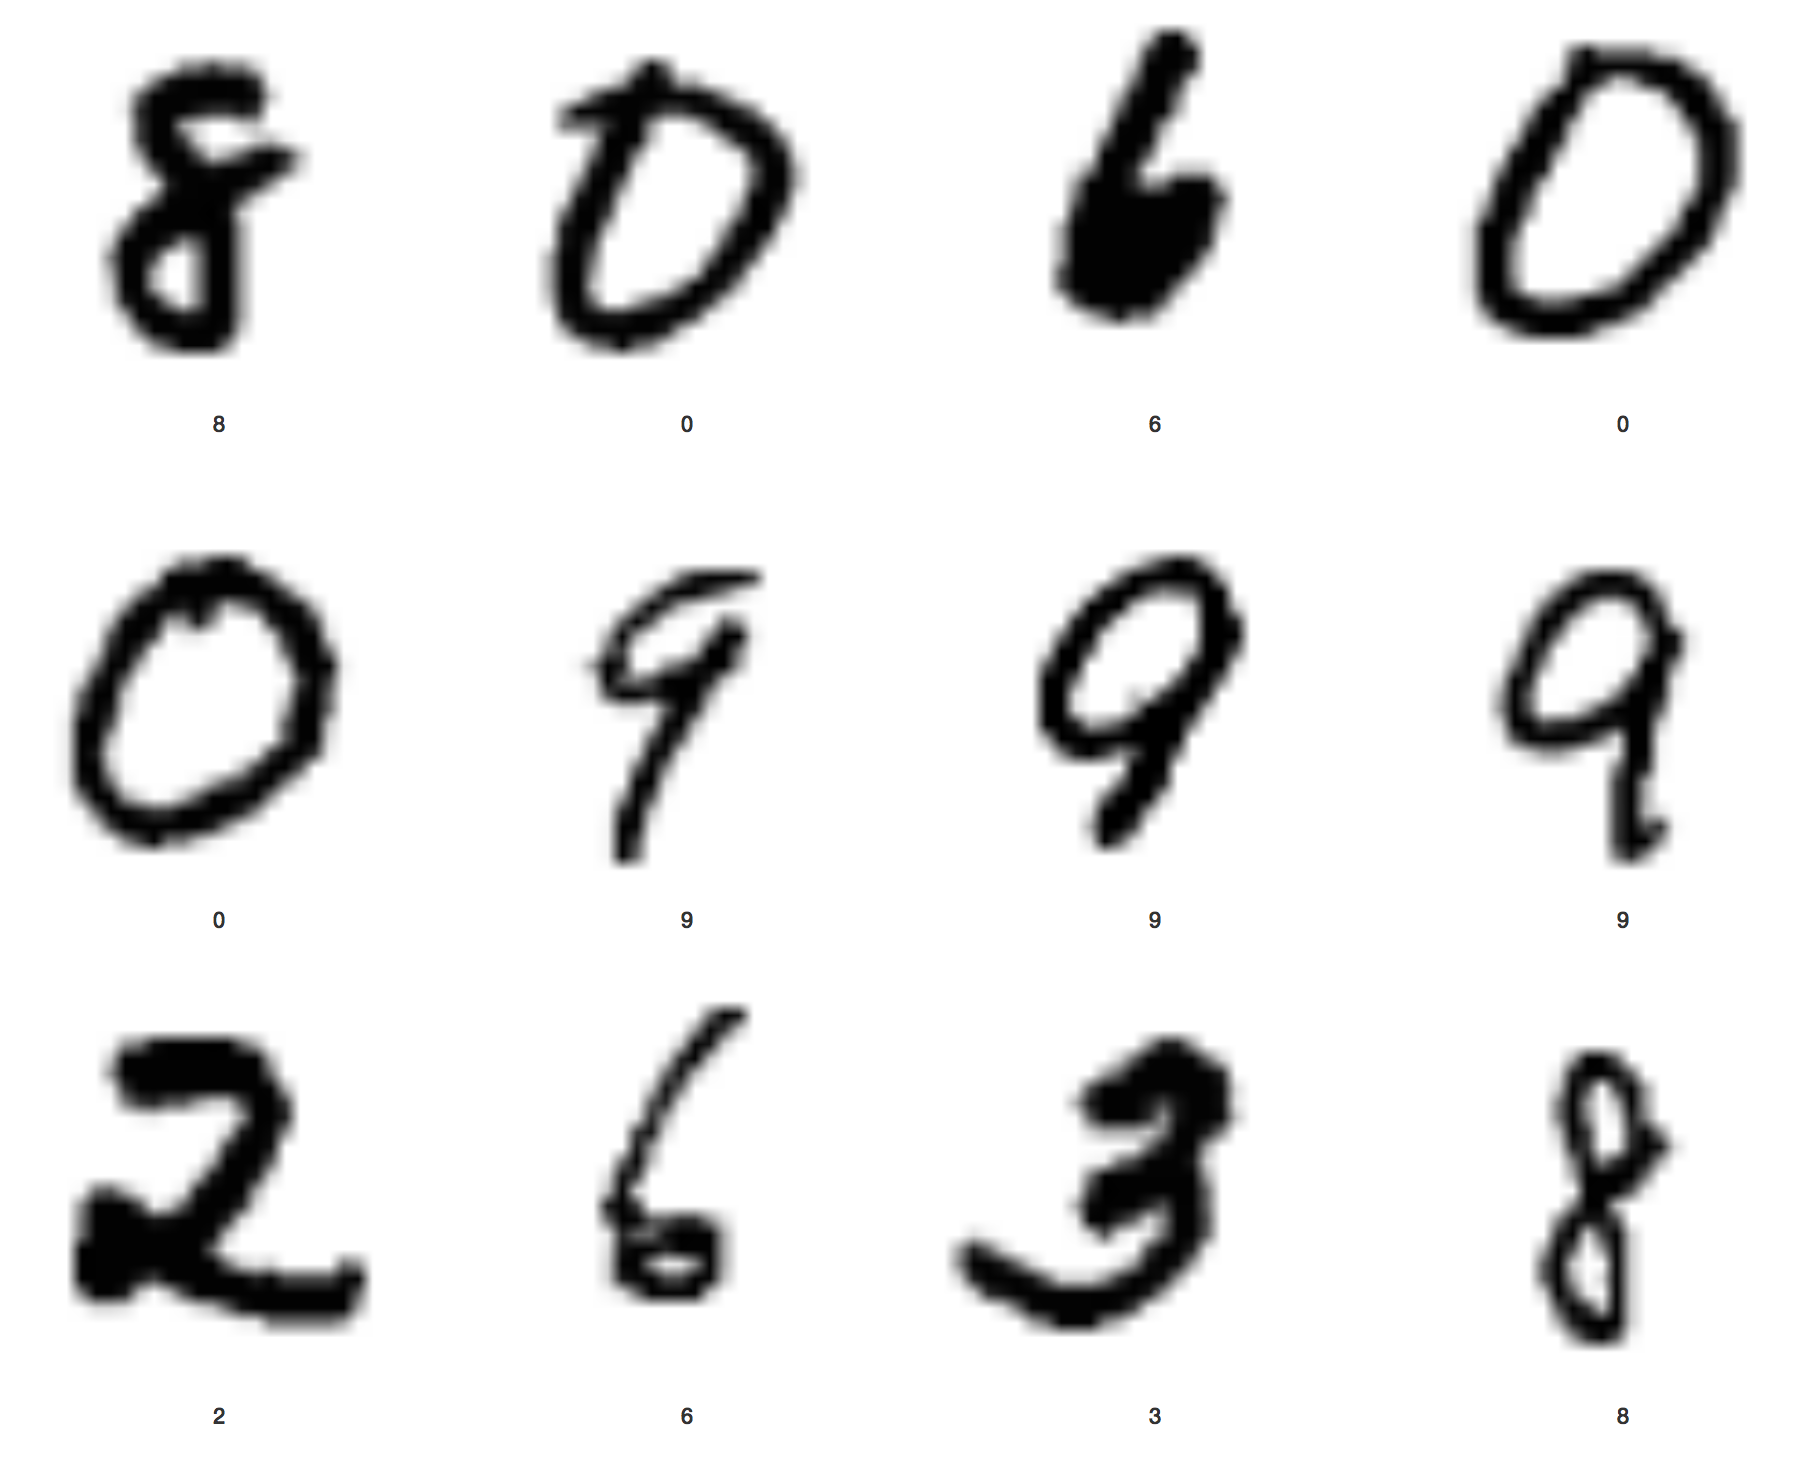 8 0 6 0
8 0 6 0
0 9 9 9
0 9 9 9
2 6 3 8
2 6 3 8